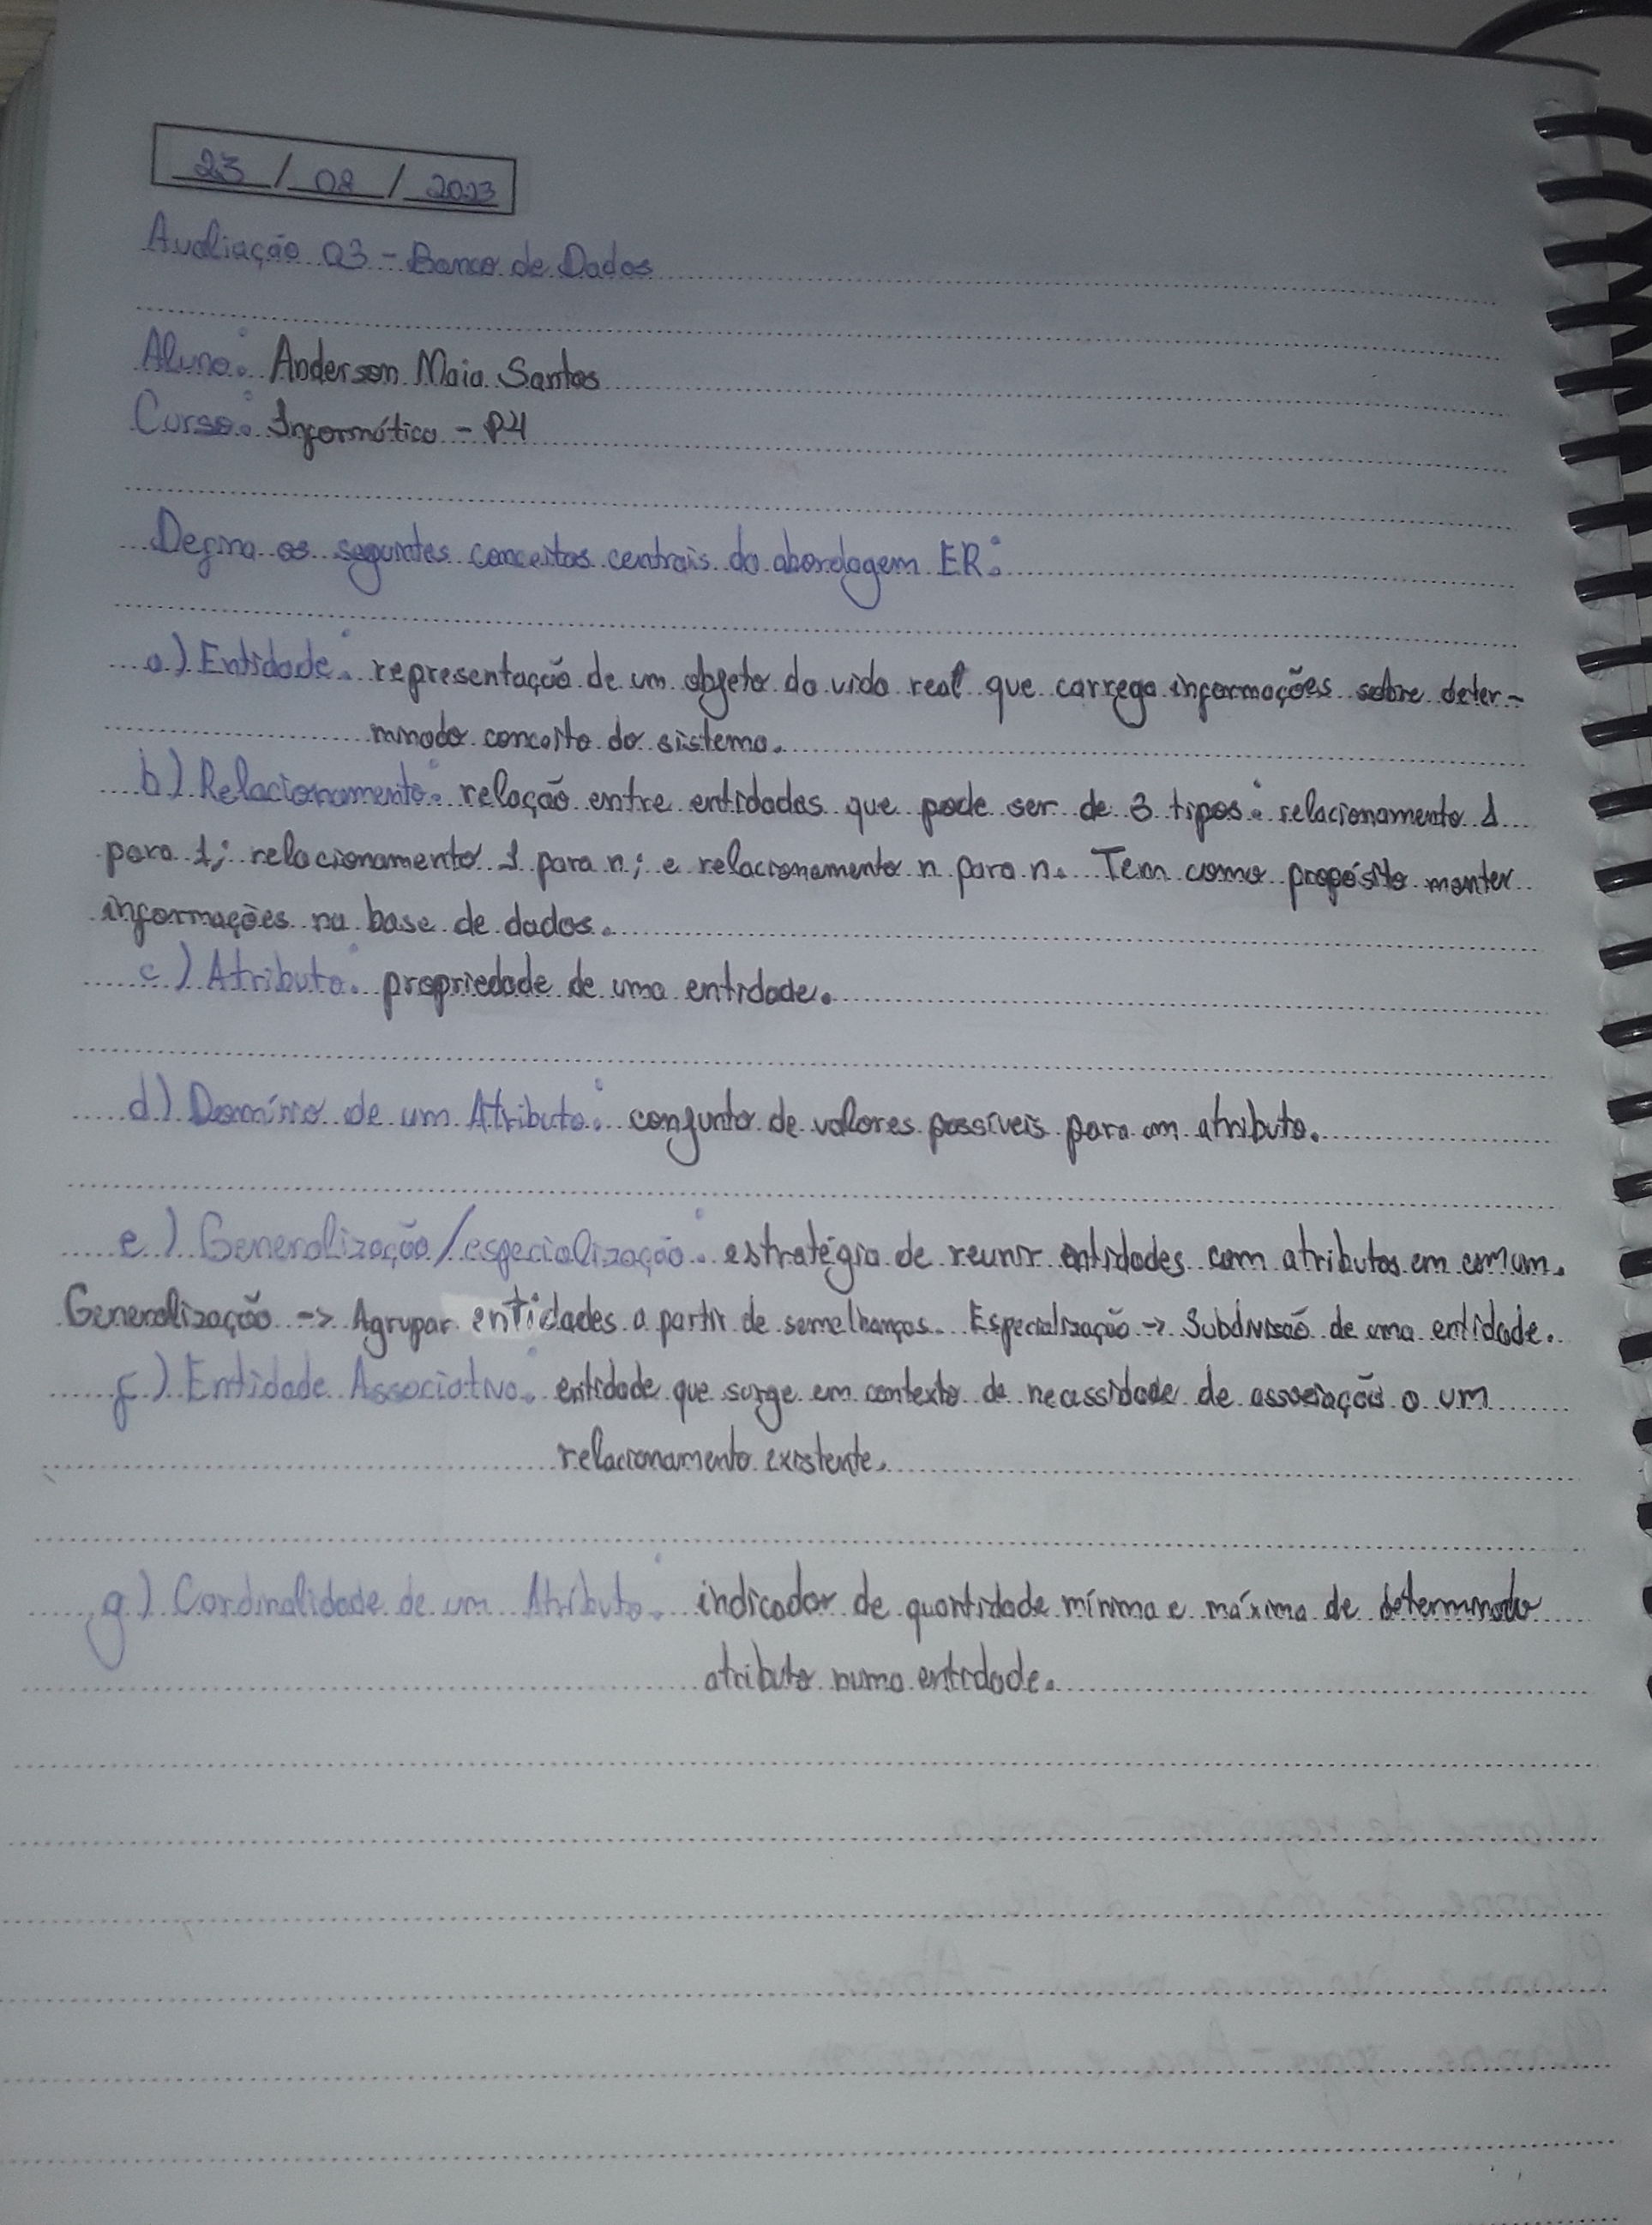 23 / 08 / 2023
Avaliação 03 - Banco de Dados
Aluno: Anderson Maia Santos
Curso: Informática - P4
Defina os seguintes conceitos centrais da abordagem ER:
a) Entidade: representação de um objeto da vida real que carrega informações sobre deter-
minado conceito do sistema.
b) Relacionamento: relação entre entidades que pode ser de 3 tipos: relacionamento 1
para 1; relacionamento 1 para n; e relacionamento n para n. Tem como propósito manter
informações na base de dados.
c) Atributo: propriedade de uma entidade.
d) Domínio de um Atributo: conjunto de valores possíveis para um atributo.
e) Generalização/especialização: estratégia de reunir entidades com atributos em comum.
Generalização -> Agrupar entidades a partir de semelhanças. Especialização -> Subdivisão de uma entidade.
f) Entidade Associativa: entidade que surge em contexto de necessidade de associação a um
relacionamento existente.
g) Cardinalidade de um Atributo: indicador de quantidade mínima e máxima de determinado
atributo numa entidade.